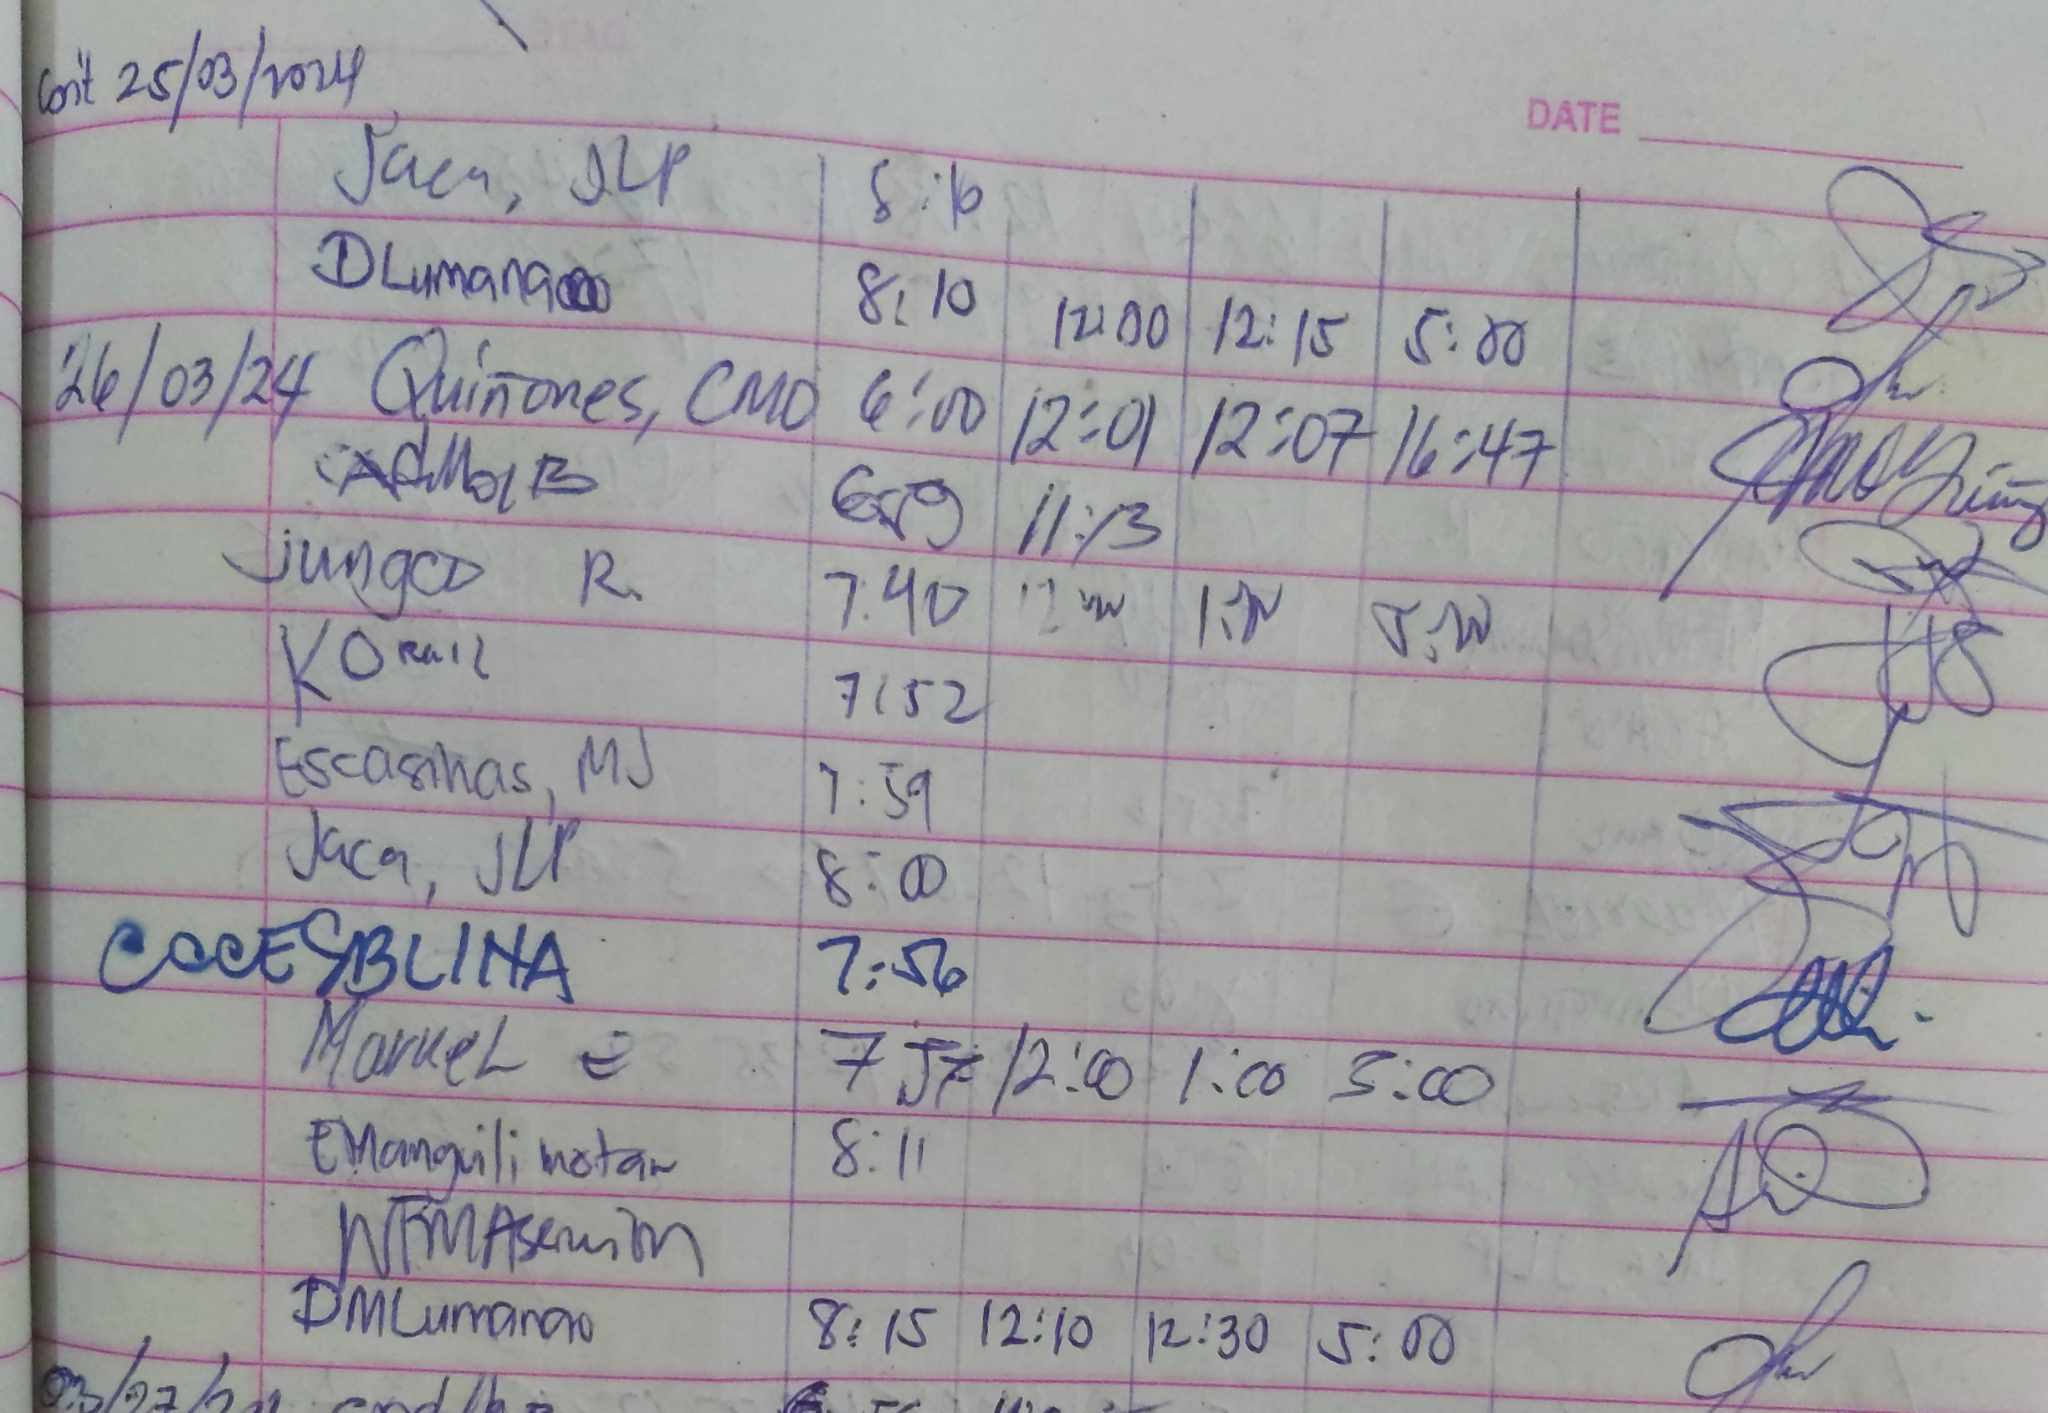 Con't 25/03/2024
DATE
Jaca, JLP 8:16
DLumanao 8:10 12:00 12:15 5:00
26/03/24 Quiñones, CMO 6:00 12:01 12:07 16:47
6:59 11:13
jungco R. 7:40 12:00 1:00 5:00
7:52
Escasinas, MJ 7:59
Jaca, JLP 8:00
CCCESBLINA 7:56
Markel E 7 57 12:00 1:00 5:00
EManguilimotan 8:11
NFMAsencion
DMLumanao 8:15 12:10 12:30 5:00
03/27/24